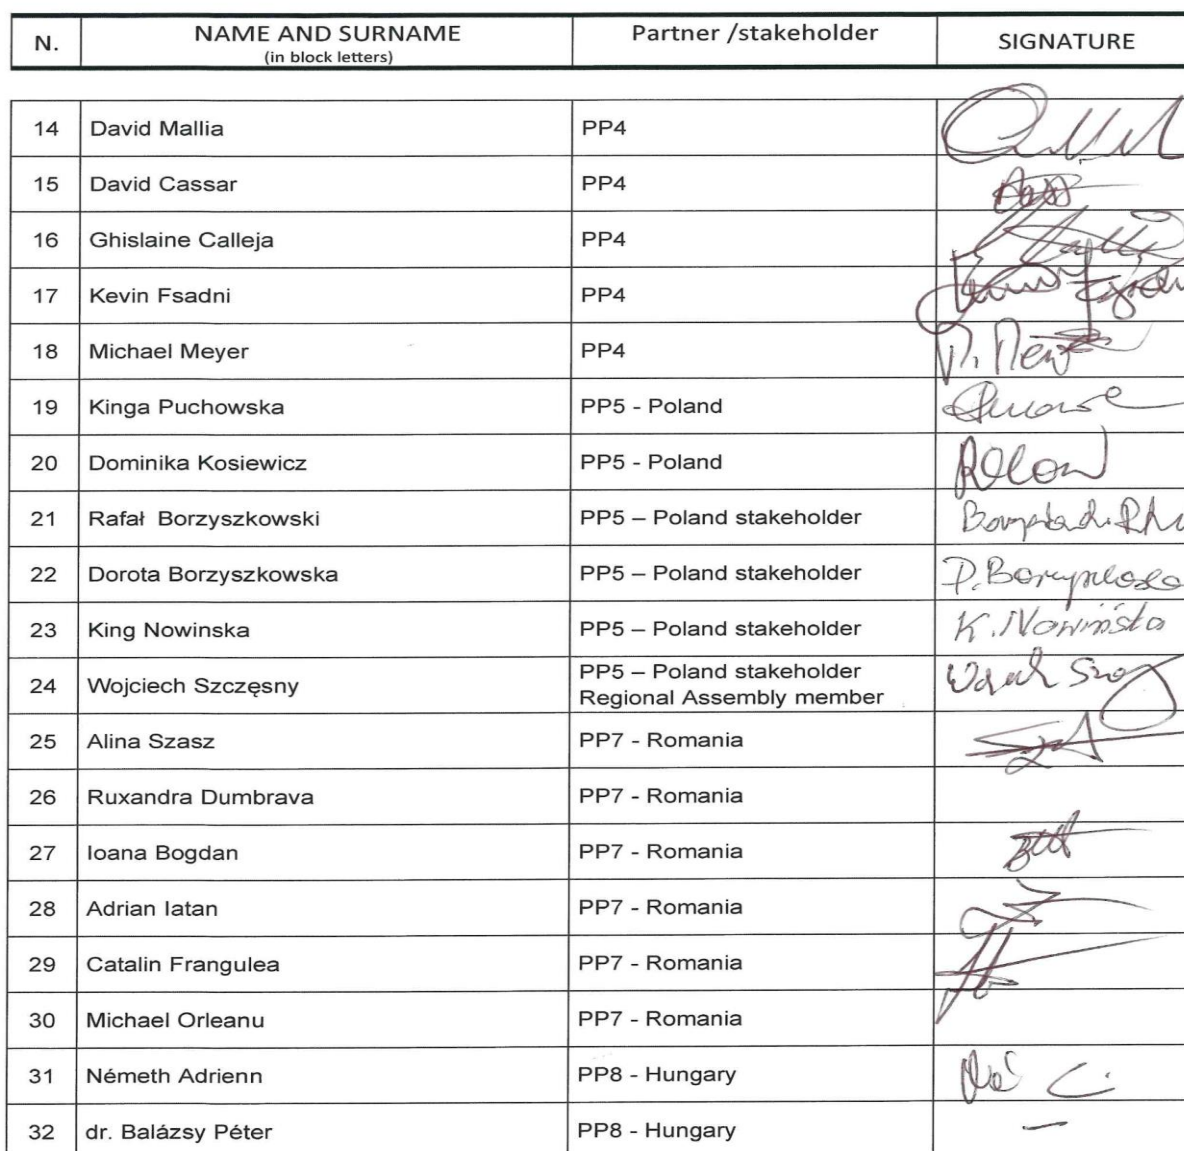 N. NAME AND SURNAME Partner /stakeholder SIGNATURE
(in block letters)
14 David Mallia PP4
15 David Cassar PP4
16 Ghislaine Calleja PP4
17 Kevin Fsadni PP4
18 Michael Meyer PP4
19 Kinga Puchowska PP5 - Poland
20 Dominika Kosiewicz PP5 - Poland
21 Rafał Borzyszkowski PP5 – Poland stakeholder
22 Dorota Borzyszkowska PP5 – Poland stakeholder
23 King Nowinska PP5 – Poland stakeholder K. Nowińska
24 Wojciech Szczęsny PP5 – Poland stakeholder
Regional Assembly member
25 Alina Szasz PP7 - Romania
26 Ruxandra Dumbrava PP7 - Romania
27 Ioana Bogdan PP7 - Romania
28 Adrian Iatan PP7 - Romania
29 Catalin Frangulea PP7 - Romania
30 Michael Orleanu PP7 - Romania
31 Németh Adrienn PP8 - Hungary
32 dr. Balázsy Péter PP8 - Hungary —